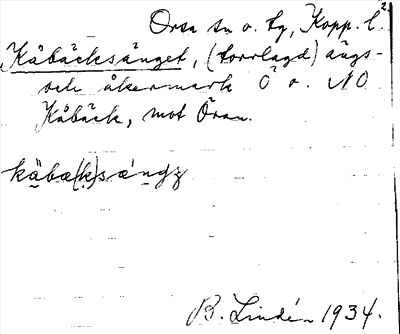 Orsa sn o. tg, Kopp. l.
Kåbäcksänget, (torrlagd) ängs-
och åkermark Ö o. NO
Kåbäck, mot Öran.
B. Lindén 1934.